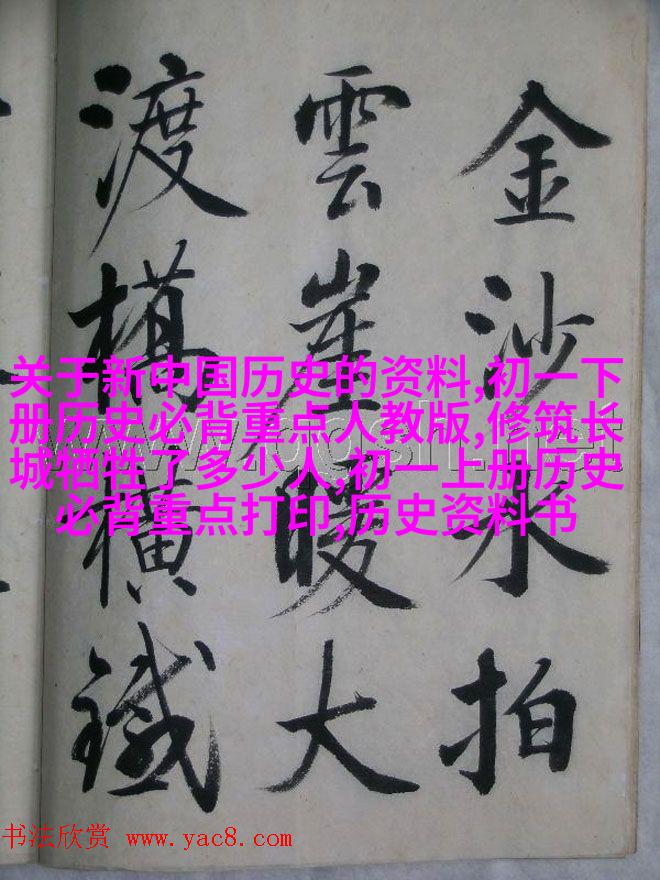 金沙水拍
雲崖暖大
渡橋橫鐵
关于新中国历史的资料,初一下
册历史必背重点人教版,修筑长
城牺牲了多少人,初一上册历史
必背重点打印,历史资料书
书法欣赏 www.yac8.com